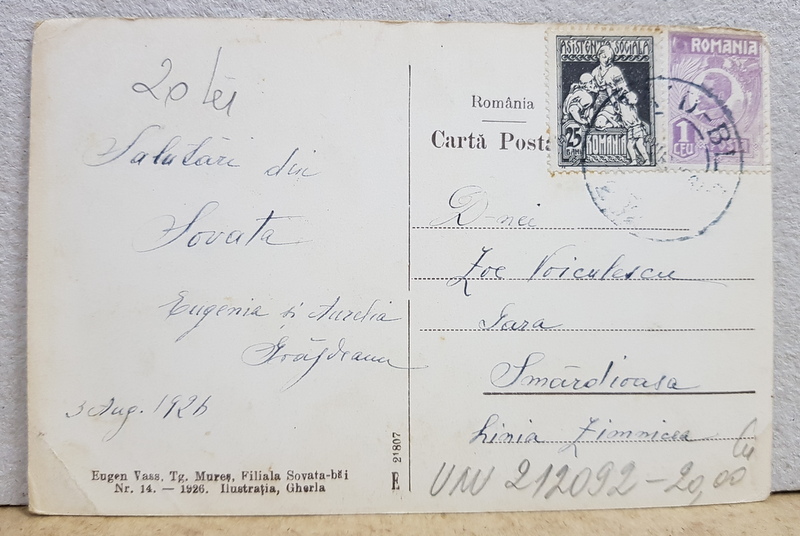 20 lei
Salutări din
Sovata
Eugenia și Aurelia
Grăjdeanu
3 Aug. 1926
Eugen Vass. Tg. Mureș, Filiala Sovata-băi
Nr. 14. — 1926. Ilustrația, Gherla
E 21807
România
Cartă Posta
ASISTENȚA SOCIALĂ
25
BANI
ROMANIA
ROMANIA
1
LEU
D-nei
Zoe Voiculescu
Gara
Smârdioasa
Linia Zimnicea
212092-20,00